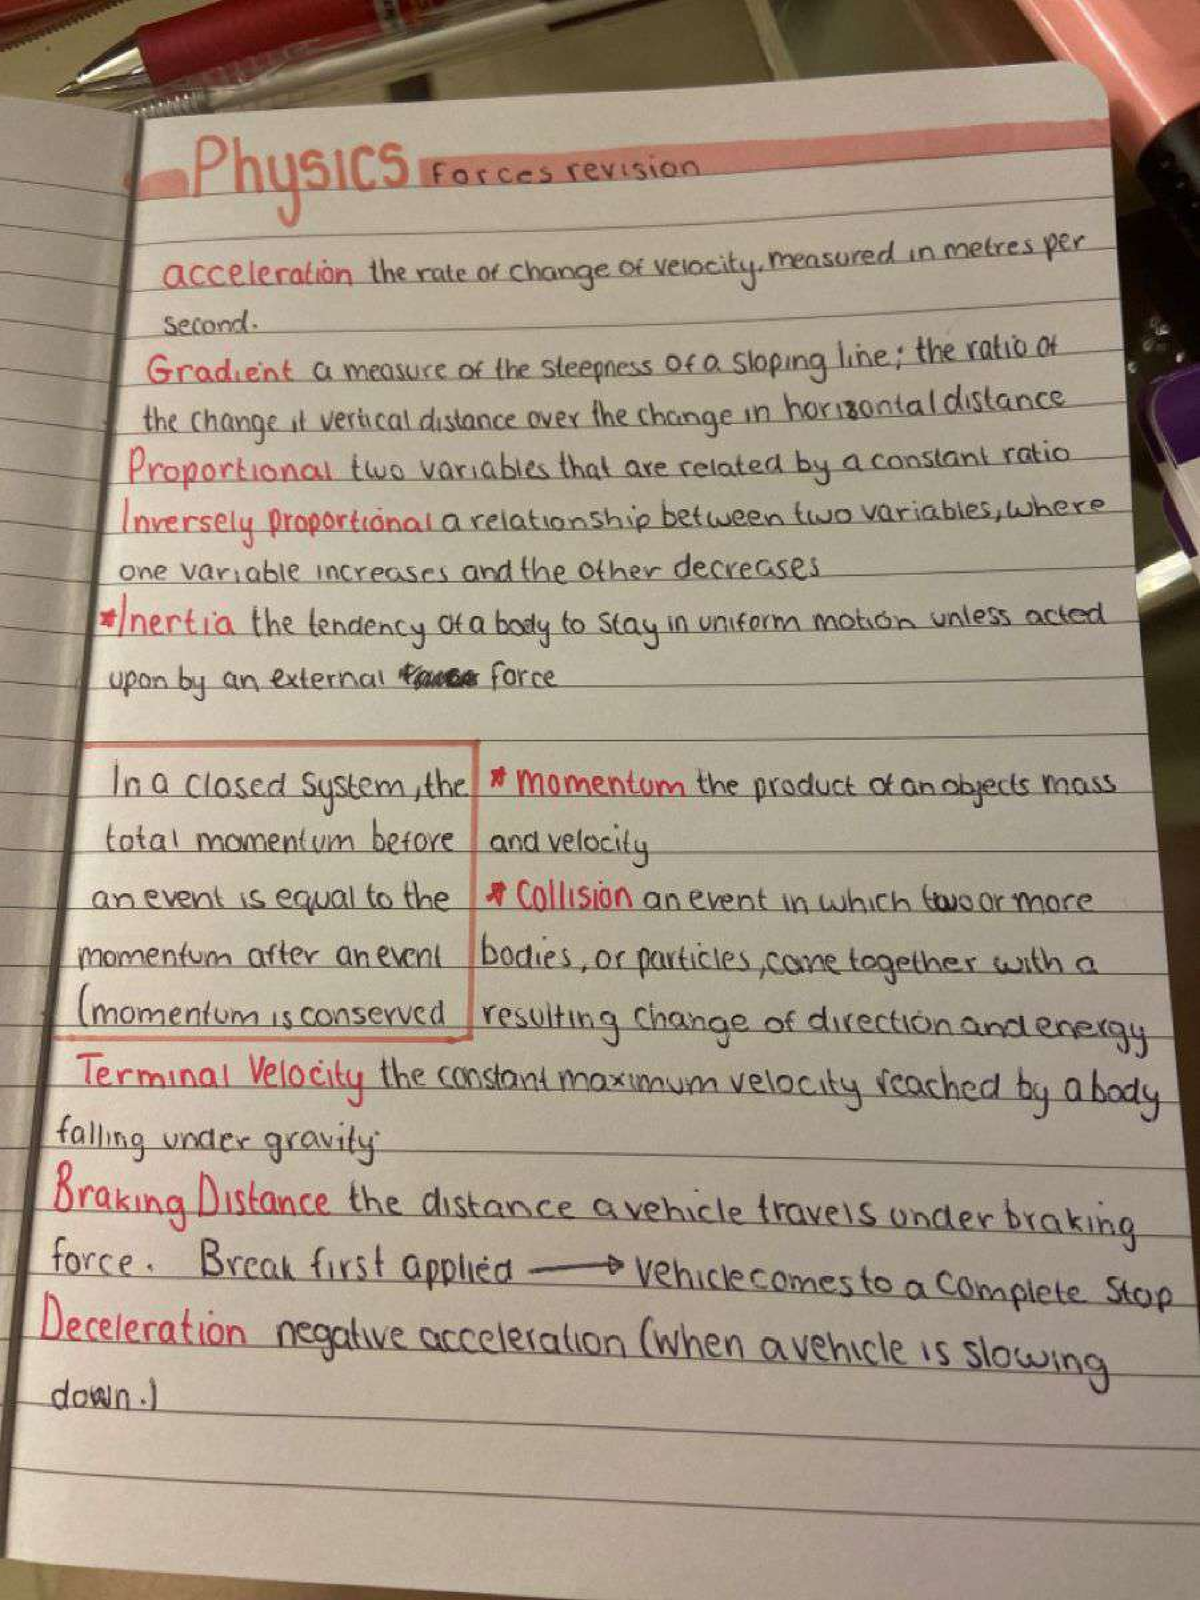 Physics Forces revision
acceleration the rate of change of velocity. measured in metres per
second.
Gradient a measure of the steepness of a sloping line; the ratio of
the change it vertical distance over the change in horizontal distance
Proportional two variables that are related by a constant ratio
Inversely proportional a relationship between two variables, where
one variable increases and the other decreases
*Inertia the tendency of a body to stay in uniform motion unless acted
upon by an external force
In a closed system, the
total momentum before
an event is equal to the
momentum after an event
(momentum is conserved
* momentum the product of an objects mass
and velocity
* Collision an event in which two or more
bodies, or particles, come together with a
resulting change of direction and energy
Terminal Velocity the constant maximum velocity reached by a body
falling under gravity.
Braking Distance the distance a vehicle travels under braking
force. Break first applied → vehicle comes to a complete stop
Deceleration negative acceleration (when a vehicle is slowing
down.)